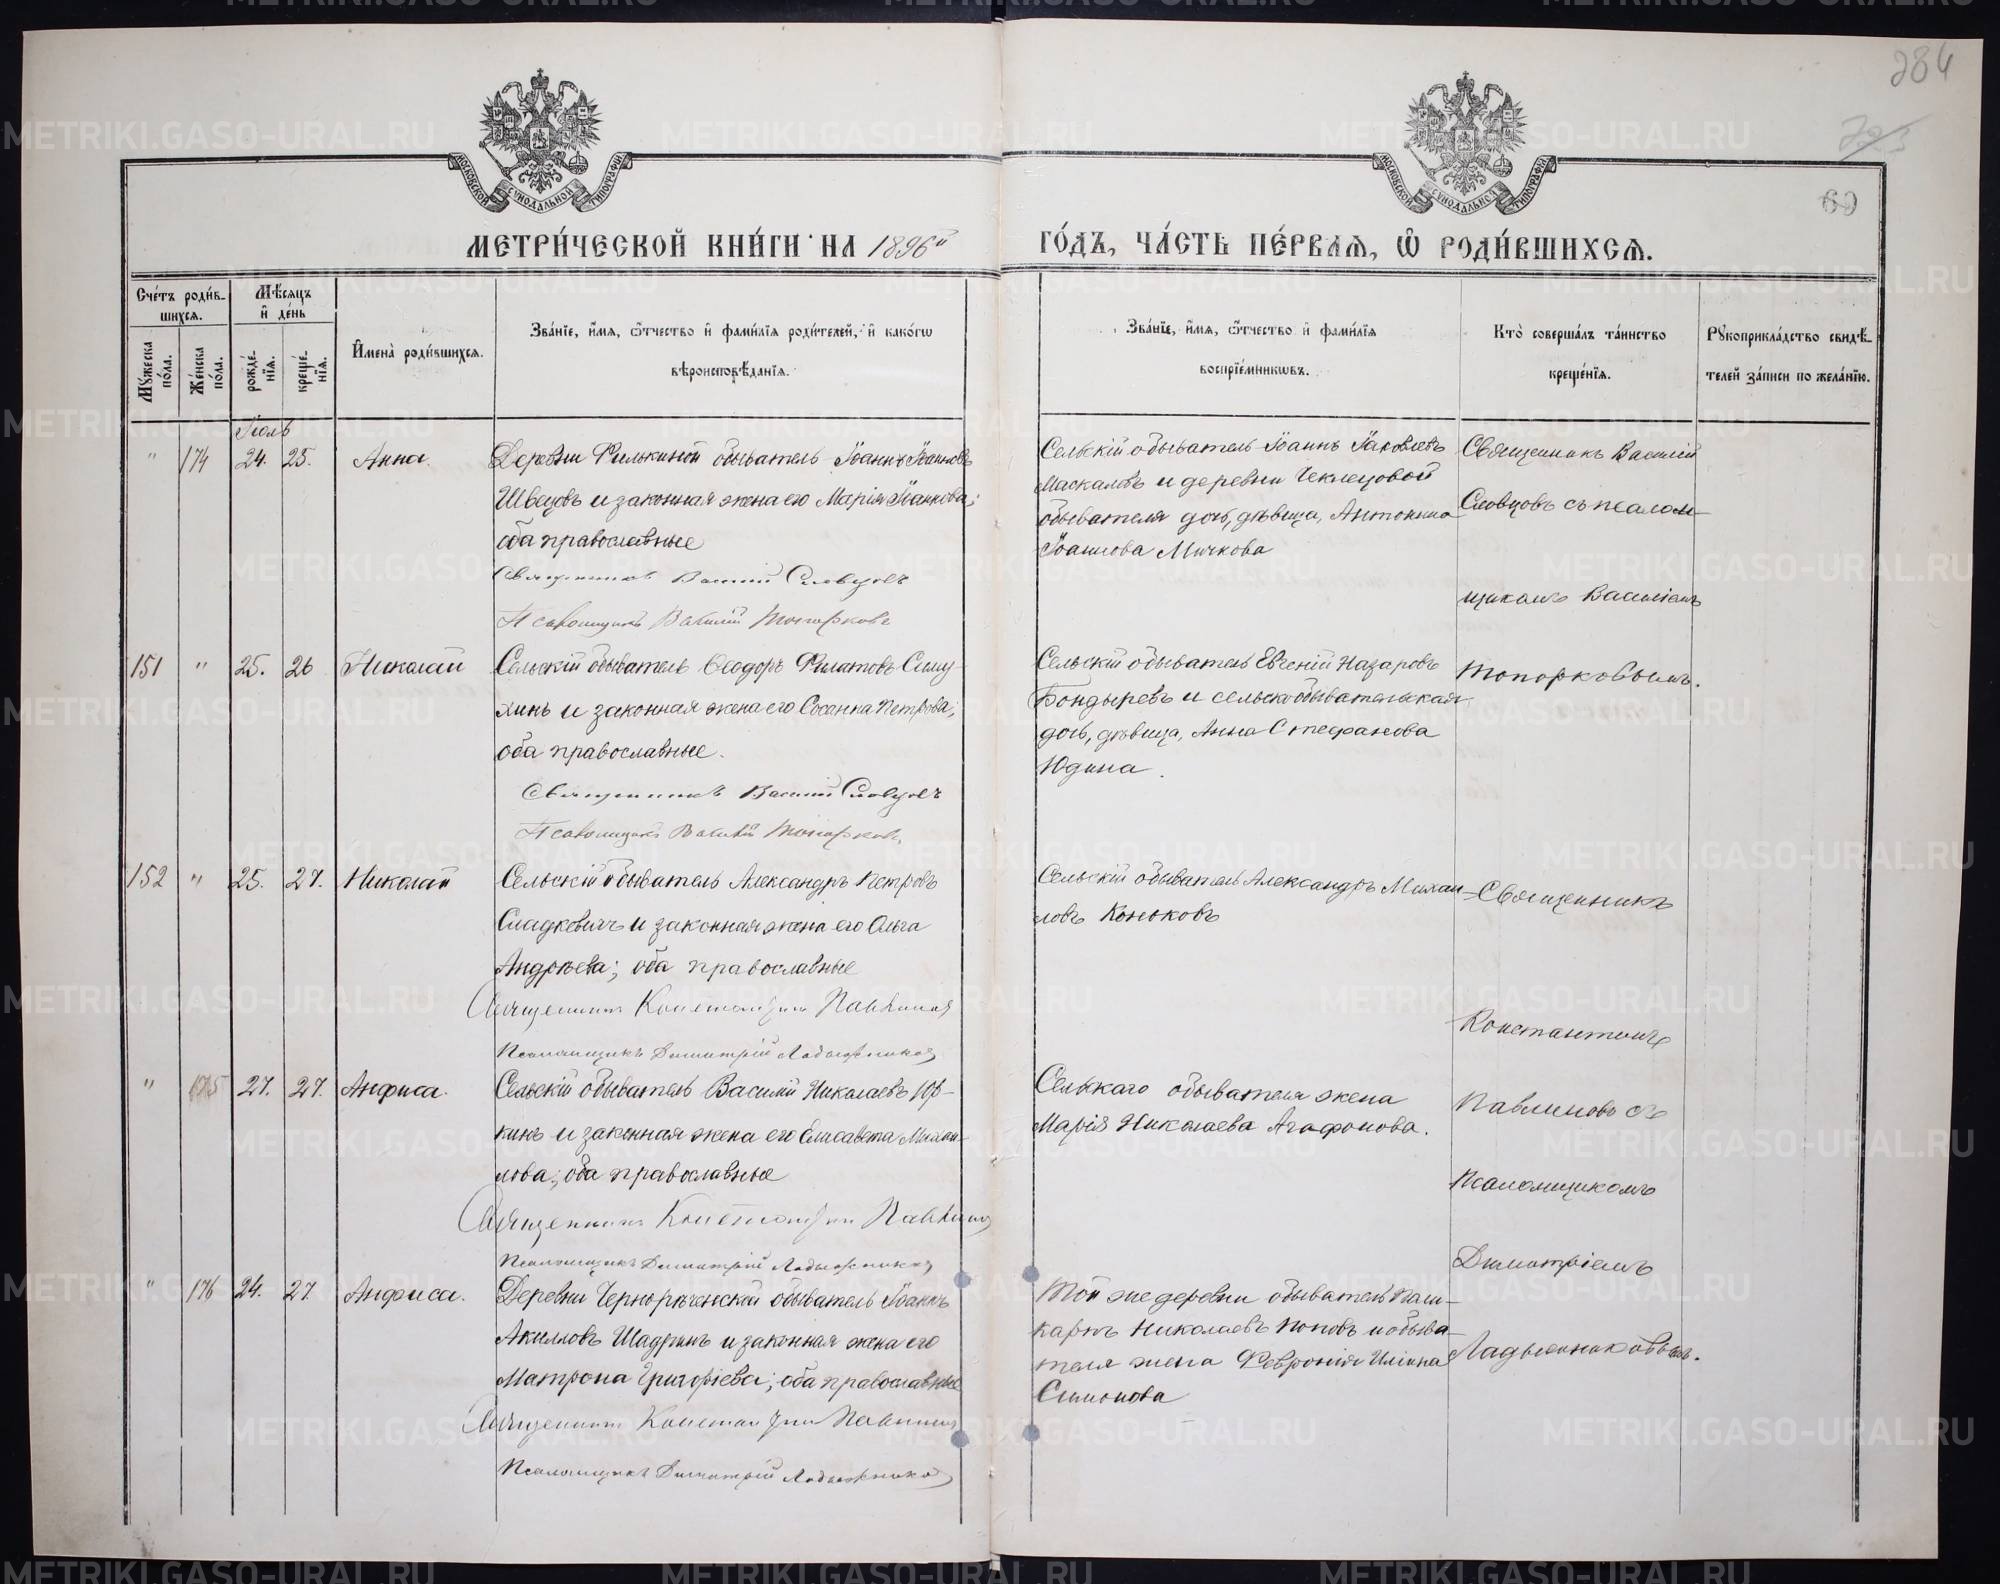 284
60
МОСКОВСКОЙ СѴНОДАЛЬНОЙ ТИПОГРАФІИ
МОСКОВСКОЙ СѴНОДАЛЬНОЙ ТИПОГРАФІИ
МЕТРИ́ЧЕСКОЙ КНИ́ГИ НА 1896й ГО́ДЪ, ЧА́СТЬ ПЕ́РВАѦ, Ѡ҆ РОДИ́ВШИХСѦ.
Сче́тъ роди́в-
шихсѧ.
Мѣ́сѧцъ
и҆ де́нь
Мꙋ́жеска
по́ла.
Же́нска
по́ла.
рожде́-
нїѧ.
креще́-
нїѧ.
И҆мена̀ роди́вшихсѧ.
Зва́нїе, и҆́мѧ, ѻ҆́тчество и҆ фами́лїѧ роди́телей, и҆ како́гѡ
вѣроисповѣ́данїѧ.
Зва́нїе, и҆́мѧ, ѻ҆́тчество и҆ фами́лїѧ
воспрїе́мникѡвъ.
Кто̀ соверша́лъ та́инство
креще́нїѧ.
Рꙋкоприкла́дство свидѣ́-
телей за́писи по жела́нїю.
Іюль
" 174 24. 25. Анна.
Деревни Филькиной обыватель Іоаннъ Іоанновъ
Швецовъ и законная жена его Марія Іоаннова;
оба православные
Священникъ Василій Словцовъ
Псаломщикъ Василій Топорковъ
Сельскій обыватель Іоаннъ Іаковлевъ
Маскалевъ и деревни Чеклецовой
обывателя дочь, дѣвица, Антонина
Іоаннова Мичкова
Священникъ Василій
Словцовъ съ псалом-
щикомъ Василіемъ
Топорковымъ.
151 " 25. 26 Николай
Сельскій обыватель Ѳеодоръ Филатовъ Симу-
хинъ и законная жена его Сосанна Петрова;
оба православные.
Священникъ Василій Словцовъ
Псаломщикъ Василій Топорковъ
Сельскій обыватель Евгеній Назаровъ
Бондыревъ и сельскообывательская
дочь, дѣвица, Анна Стефанова
Юдина.
152 " 25. 27. Николай
Сельскій обыватель Александръ Петровъ
Сладкевичъ и законная жена его Ольга
Андрѣева; оба православные
Священникъ Константинъ Павлиновъ
Псаломщикъ Димитрій Ладыжниковъ
Сельскій обыватель Александръ Михаи-
ловъ Коньковъ
Священникъ
Константинъ
Павлиновъ съ
Псаломщикомъ
Димитріемъ
Ладыжниковымъ.
" 175 27. 27. Анфиса.
Сельскій обыватель Василій Николаевъ Юр-
кинъ и законная жена его Елисавета Михаи-
лова; оба православные
Священникъ Константинъ Павлиновъ
Псаломщикъ Димитрій Ладыжниковъ
Сельскаго обывателя жена
Марія Николаева Агафонова.
" 176 24. 27. Анфиса.
Деревни Чернорѣченской обыватель Іоаннъ
Акилловъ Шадринъ и законная жена его
Матрона Григоріева; оба православные
Священникъ Константинъ Павлиновъ
Псаломщикъ Димитрій Ладыжниковъ
Той же деревни обыватель
Николаевъ Поповъ и обыва-
теля жена Февронія Иліина
Симонова
METRIKI.GASO-URAL.RU